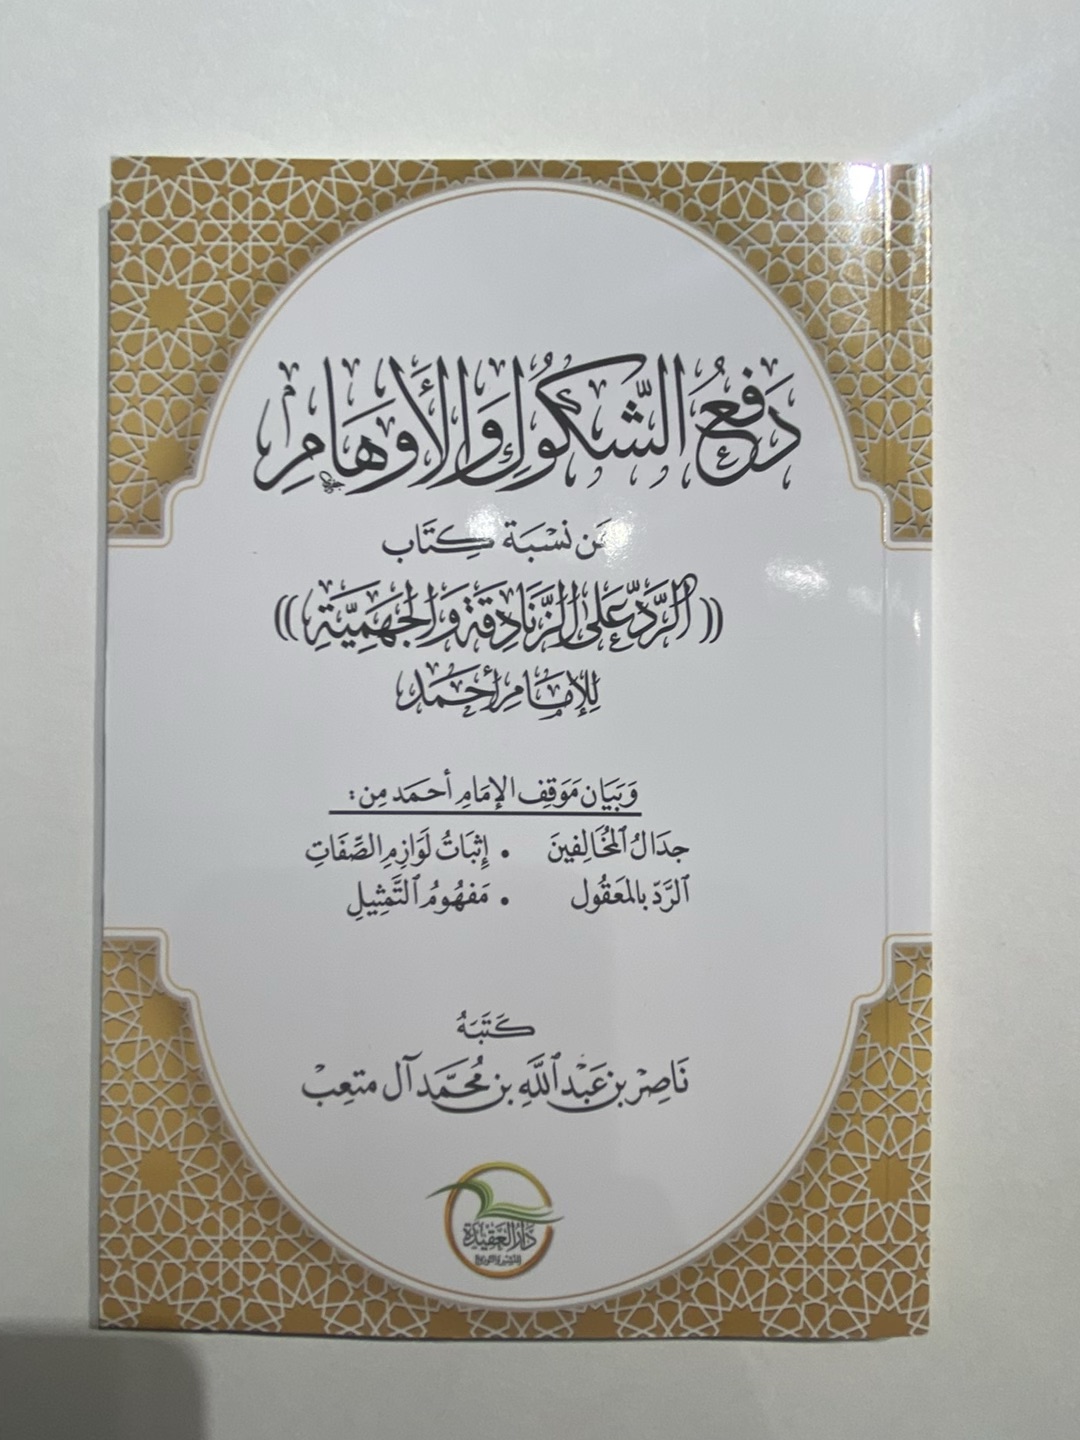 دَفْعُ الشُّكُوكِ وَالأَوْهَامِ
عَن نِسْبَة كِتَاب
((الرَّدِّ عَلَى الزَّنَادِقَةِ وَالجَهْمِيَّةِ))
لِلإِمَامِ أَحْمَد
وَبَيَان مَوَقِف الإِمَامِ أحمَد مِن:
جدَالُ المُخَالِفينَ • إِثبَاتُ لَوَازِمِ الصِّفَاتِ
الرَّدّ بالمَعقُول • مَفهُومُ التَّمْثِيلِ
كَتَبَهُ
نَاصِر بن عَبْد اللَّهِ بن مُحَمَّد آل متعِبْ
دَارُ العَقِيدَة
للنشر والتوزيع